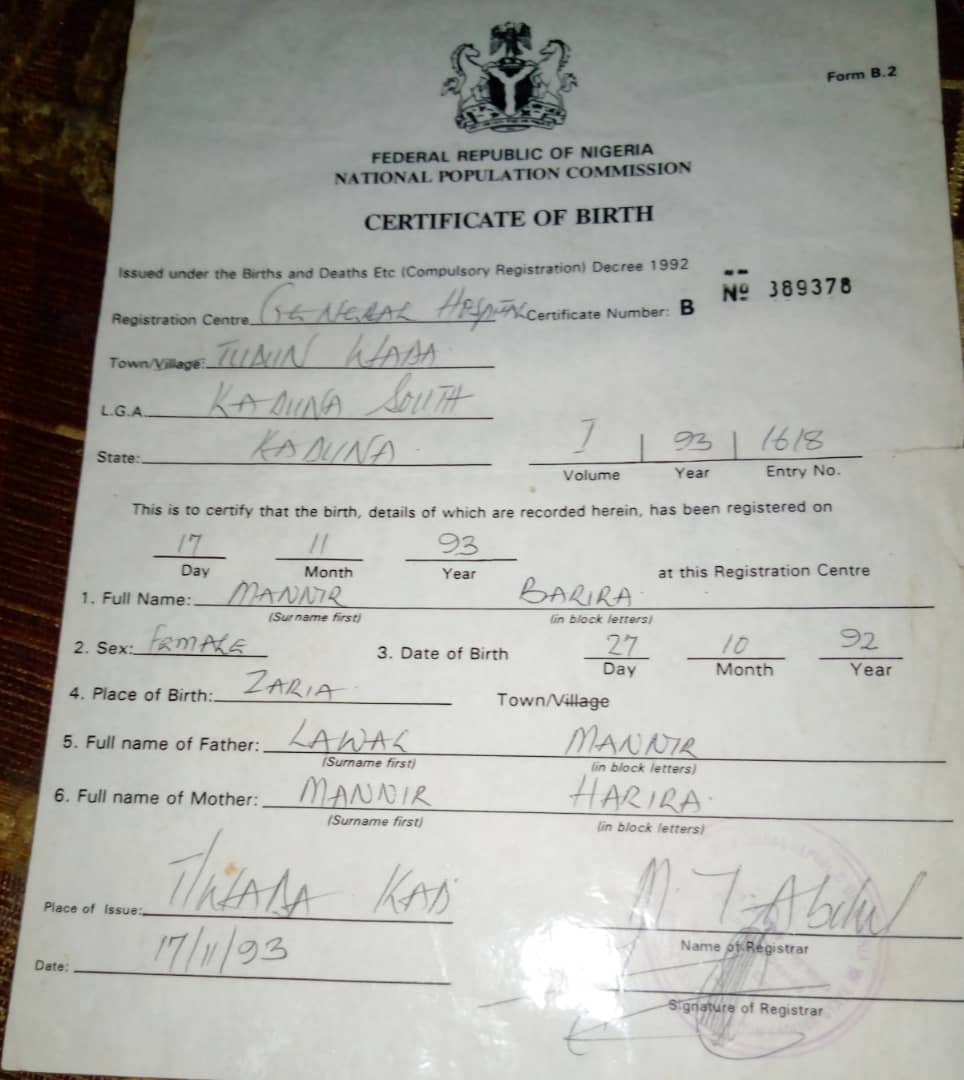 Form B.2
FEDERAL REPUBLIC OF NIGERIA
NATIONAL POPULATION COMMISSION
CERTIFICATE OF BIRTH
Issued under the Births and Deaths Etc (Compulsory Registration) Decree 1992
Registration Centre GENERAL HOSPITAL Certificate Number: B Nº 389378
Town/Village: TUDUN WADA
L.G.A. KADUNA SOUTH
State: KADUNA
I | 93 | 1618
Volume Year Entry No.
This is to certify that the birth, details of which are recorded herein, has been registered on
17 11 93
Day Month Year at this Registration Centre
1. Full Name: MANNIR BARIRA
(Surname first) (in block letters)
2. Sex: FEMALE 3. Date of Birth 27 10 92
Day Month Year
4. Place of Birth: ZARIA Town/Village
5. Full name of Father: LAWAL MANNIR
(Surname first) (in block letters)
6. Full name of Mother: MANNIR HARIRA
(Surname first) (in block letters)
Place of Issue: T/WADA KAD M. T. Abdul
Name of Registrar
Date: 17/11/93
Signature of Registrar